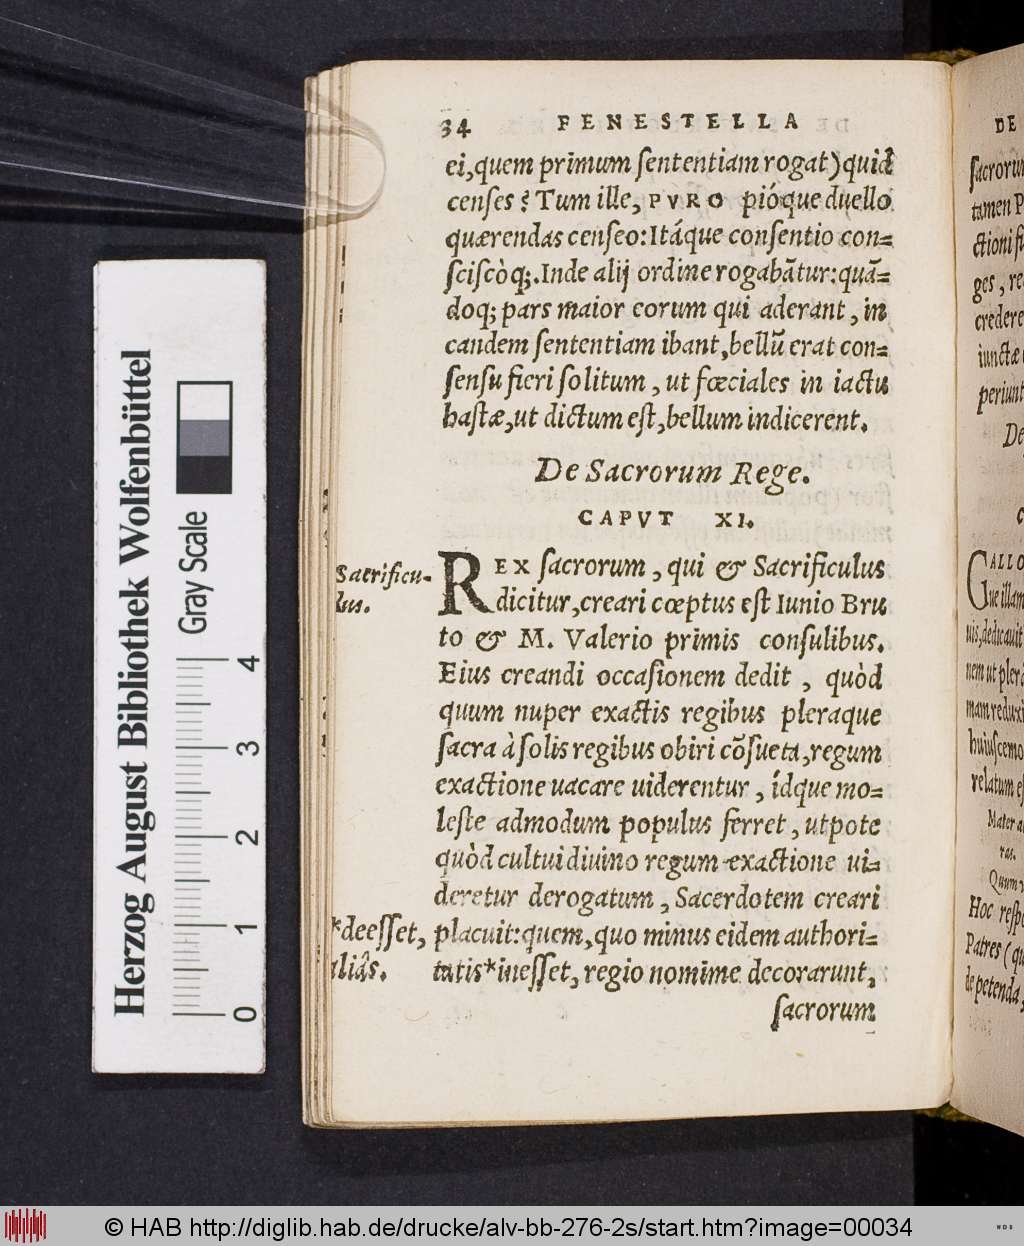 34 FENESTELLA
ei,quem primum sententiam rogat)quid
censes? Tum ille, PVRO pióque duello
quærendas censeo:Itáque consentio con=
sciscòq;.Inde alij ordine rogabātur:quā=
doq; pars maior eorum qui aderant, in
eandem sententiam ibant,bellū erat con=
sensu fieri solitum, ut fœciales in iactu
hastæ,ut dictum est,bellum indicerent.
De Sacrorum Rege.
CAPVT XI.
Sacrificu-
lus.
REX sacrorum, qui & Sacrificulus
dicitur,creari cœptus est Iunio Bru
to & M. Valerio primis consulibus.
Eius creandi occasionem dedit, quòd
quum nuper exactis regibus pleraque
sacra à solis regibus obiri cōsueta,regum
exactione uacare uiderentur, ídque mo=
leste admodum populus ferret, utpote
quòd cultui diuino regum exactione ui=
deretur derogatum, Sacerdotem creari
*deesset,
aliâs.
placuit:quem,quo minus eidem authori=
tatis*inesset, regio nomine decorarunt,
sacrorum
DE
sacrorum
tamen P
ctioni si
ges, re
credere
iunctæ
periunt
De
C
GALLO
ue illam
uis,dedicauit
nem ut plera
mam reduxi
huiuscemo
relatum es
Mater
ras.
Quum
Hoc respo
Patres (qu
de petenda
Herzog August Bibliothek Wolfenbüttel
Gray Scale
0 1 2 3 4
© HAB http://diglib.hab.de/drucke/alv-bb-276-2s/start.htm?image=00034
WDB